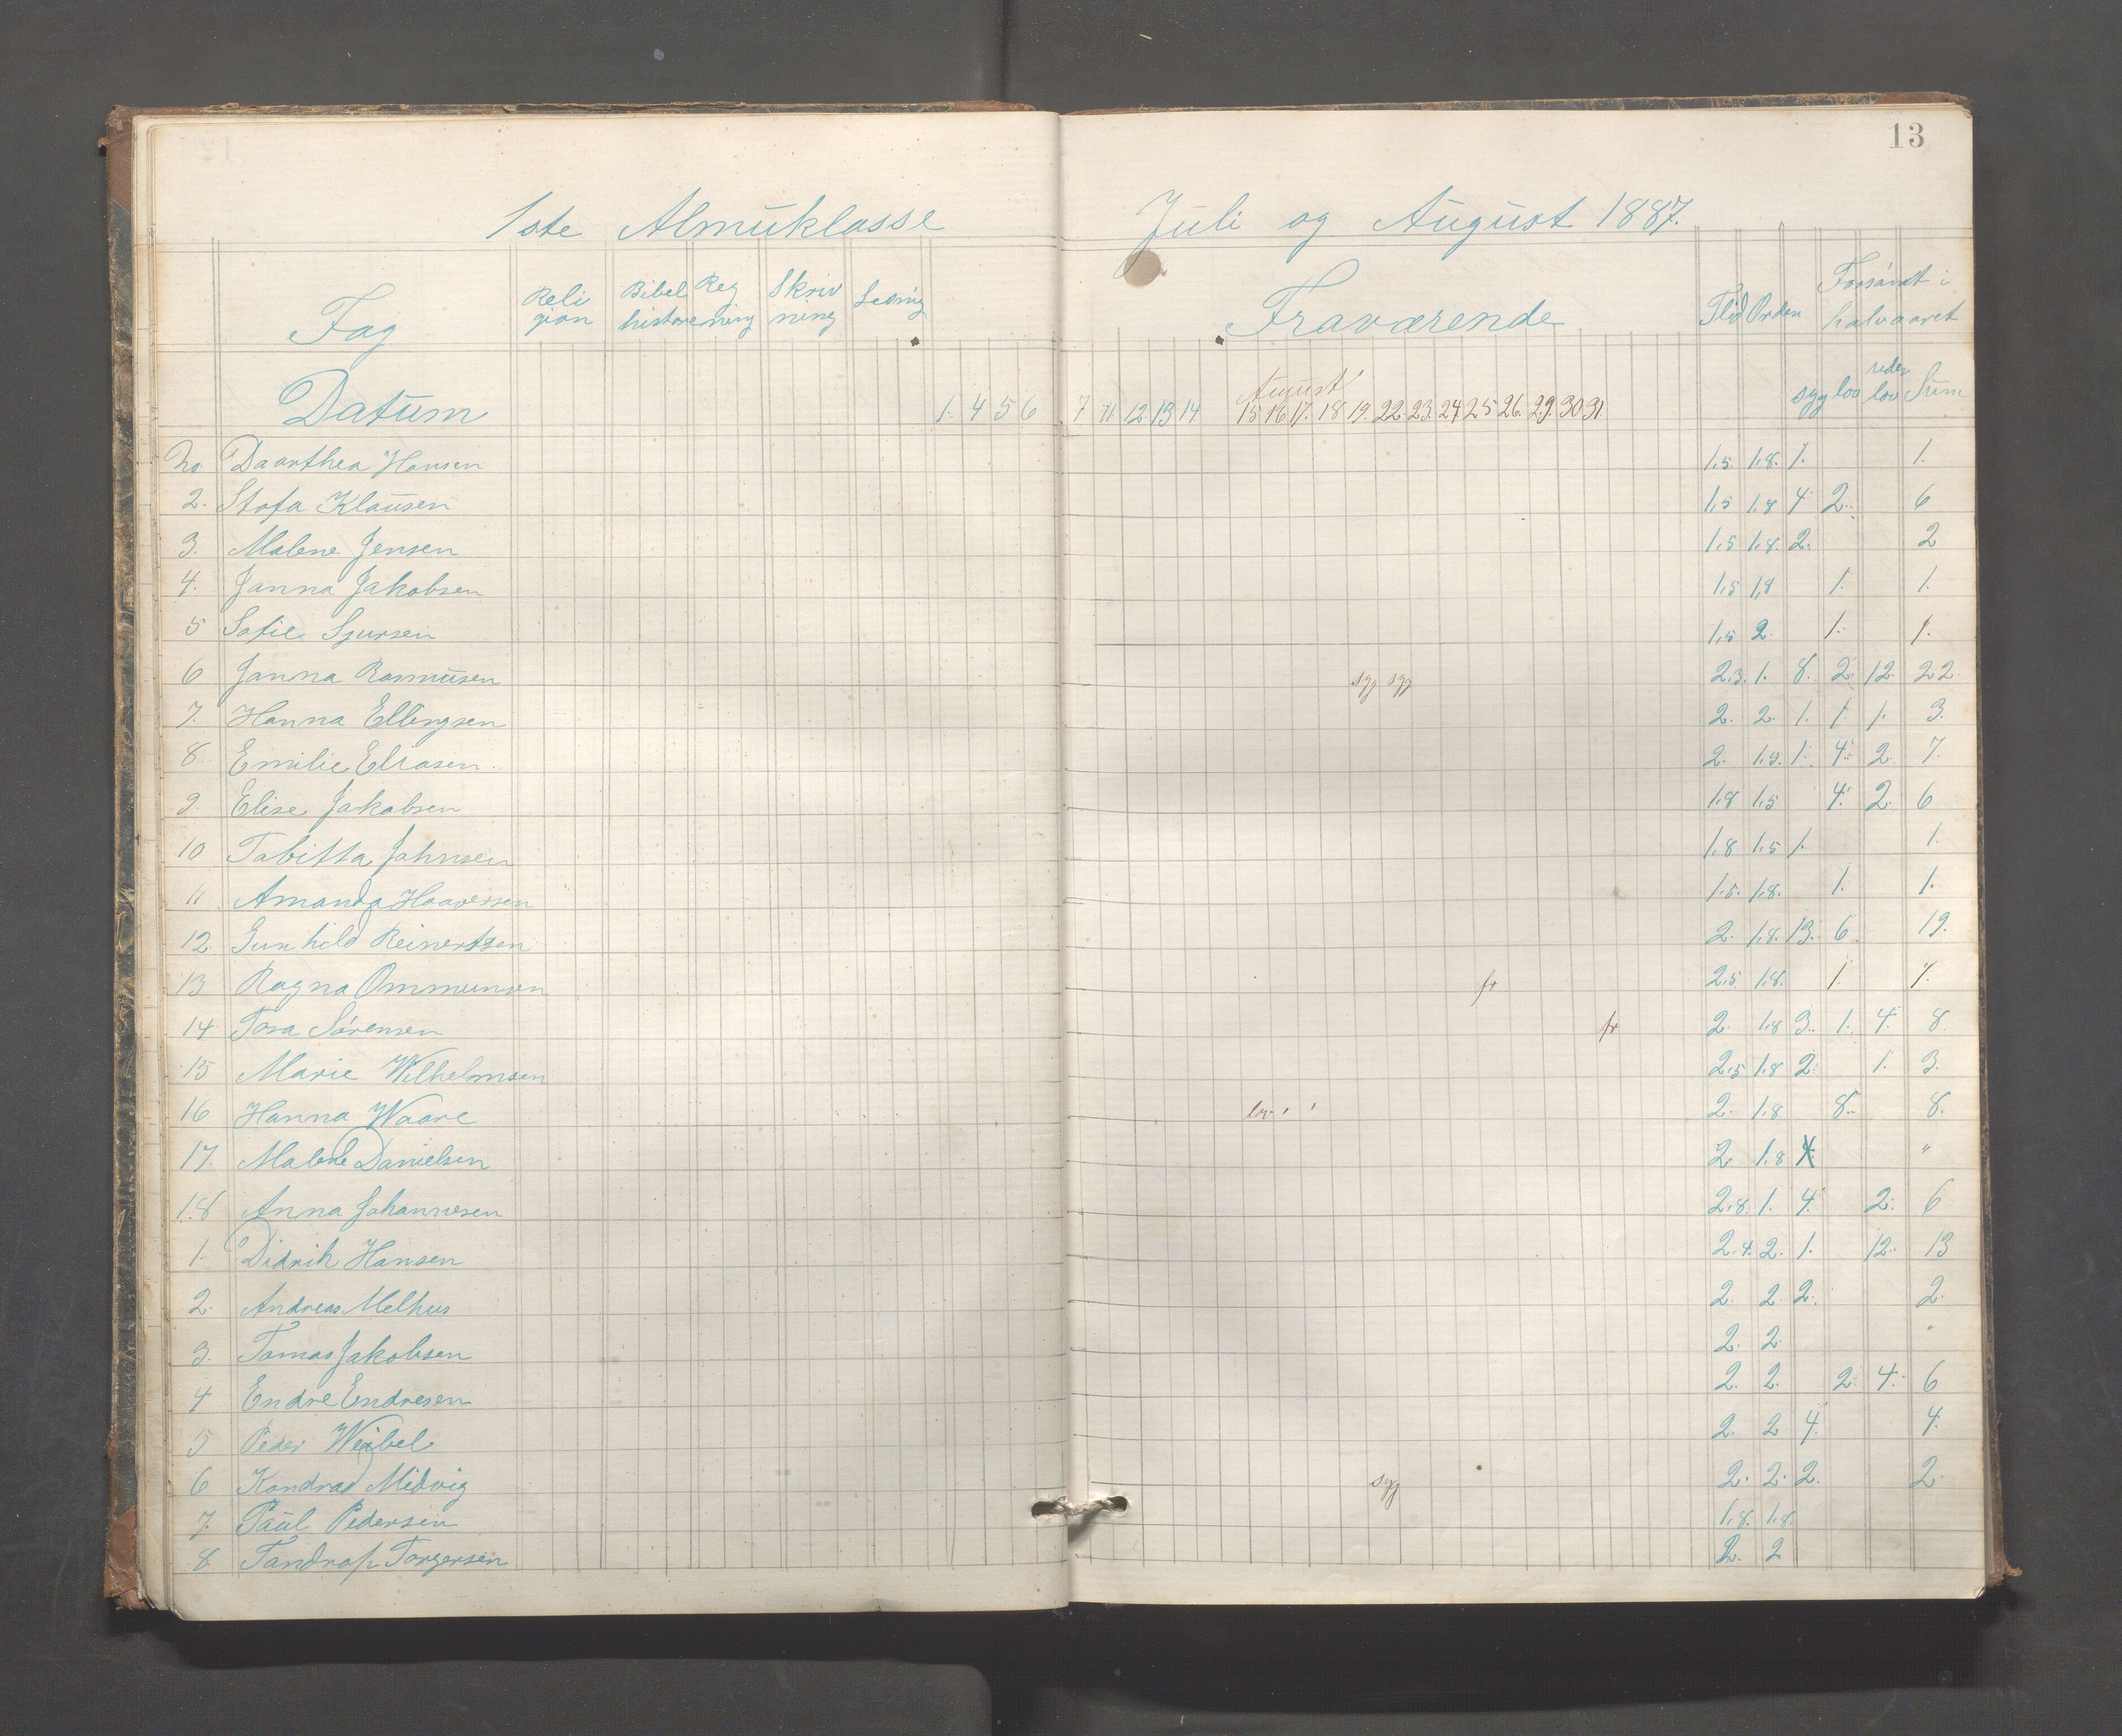 13
1ste Almuklasse Juli og August 1887.
Fag Religion Bibelhistore Regning Skrivning Lesnig Fraværende Flid Orden Forsömt i halvaaret
Datum 1. 4 5 6 7 11 12 13 14 August 15 16 17. 18 19. 22. 23. 24 25 26. 29. 30 31. syg lov uden lov Sum
No Daarthea Hansen 1,5. 1,8. 1. 1.
2. Stofa Klausen 1,5 1,8 4. 2. 6
3. Malene Jensen 1,5 1,8. 2. 2
4. Janna Jakobsen 1,5 1,8 1. 1.
5 Sofie Sjursen 1,5 2. 1. 1.
6 Janna Rasmusen syg syg 2,3. 1. 8. 2. 12. 22.
7. Hanna Ellingsen 2. 2. 1. 1. 1. 3.
8. Emilie Eliasen. 2. 1,9. 1. 4. 2. 7.
9. Elise Jakobsen 1,8 1,5 4. 2. 6
10 Tabitta Johnsen 1,8 1,5 1. 1.
11 Amanda Haaversen 1,5. 1,8. 1. 1.
12 Gunhild Reinertsen 2. 1,8. 13. 6 19.
13 Ragna Ommunsen fr 2,5. 1,8. 1. 1.
14 Tora Sörensen fr 2. 1,8 3. 1. 4. 8.
15 Marie Wilhelmsen 2,5 1,8 2. 1. 3.
16 Hanna Waare lov ' ' 2. 1,8 8. 8.
17. Malene Danielsen 2. 1,8 "
18 Anna Johannesen 2,8. 1. 4. 2. 6
1. Didrik Hansen 2,4. 2. 1. 12. 13
2. Andreas Melhus 2. 2. 2. 2.
3. Tomas Jakobsen 2. 2 "
4 Endre Endresen 2. 2. 2. 4. 6
5 Peder Weibel 2. 2 4. 4.
6 Kondrad Midvig syg 2. 2. 2. 2.
7. Paul Pedersen 1,8. 1,8.
8 Tandrop Torgersen 2. 2